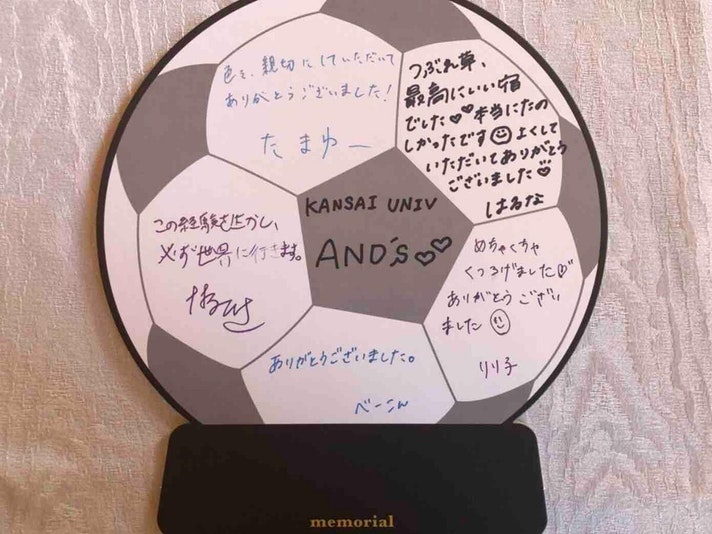 色々、親切にしていただいて
ありがとうございました!
たまゆー
つぶれ草、
最高にいい宿
でした♡♡本当にたの
しかったです☺よくして
いただいてありがとう
ございました♡
はるな
KANSAI UNIV
AND's♡♡
この経験を生かし、
必ず世界に行きます。
はるひさ
めちゃくちゃ
くつろげました♡
ありがとうござい
ました☺
りり子
ありがとうございました。
べーこん
memorial